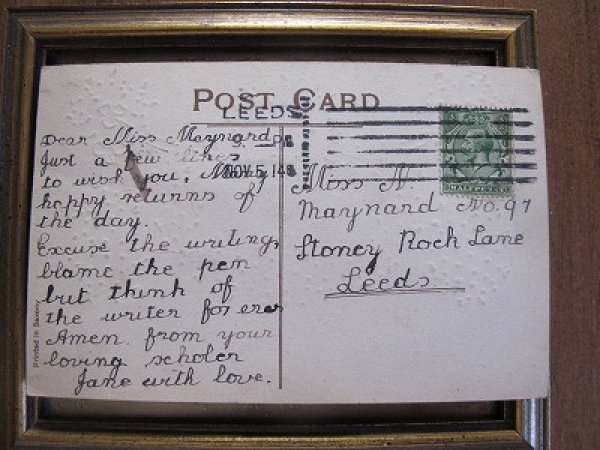 POST CARD
LEEDS
NOV 5 14
Dear Miss Maynard
Just a few lines
to wish you, Many
happy returns of
the day.
Excuse the writing,
blame the pen
but think of
the writer for ever
Amen. from your
loving scholer
Jane with love.
Miss N.
Maynard No. 97
Stoney Roch Lane
Leeds
Printed in Saxony